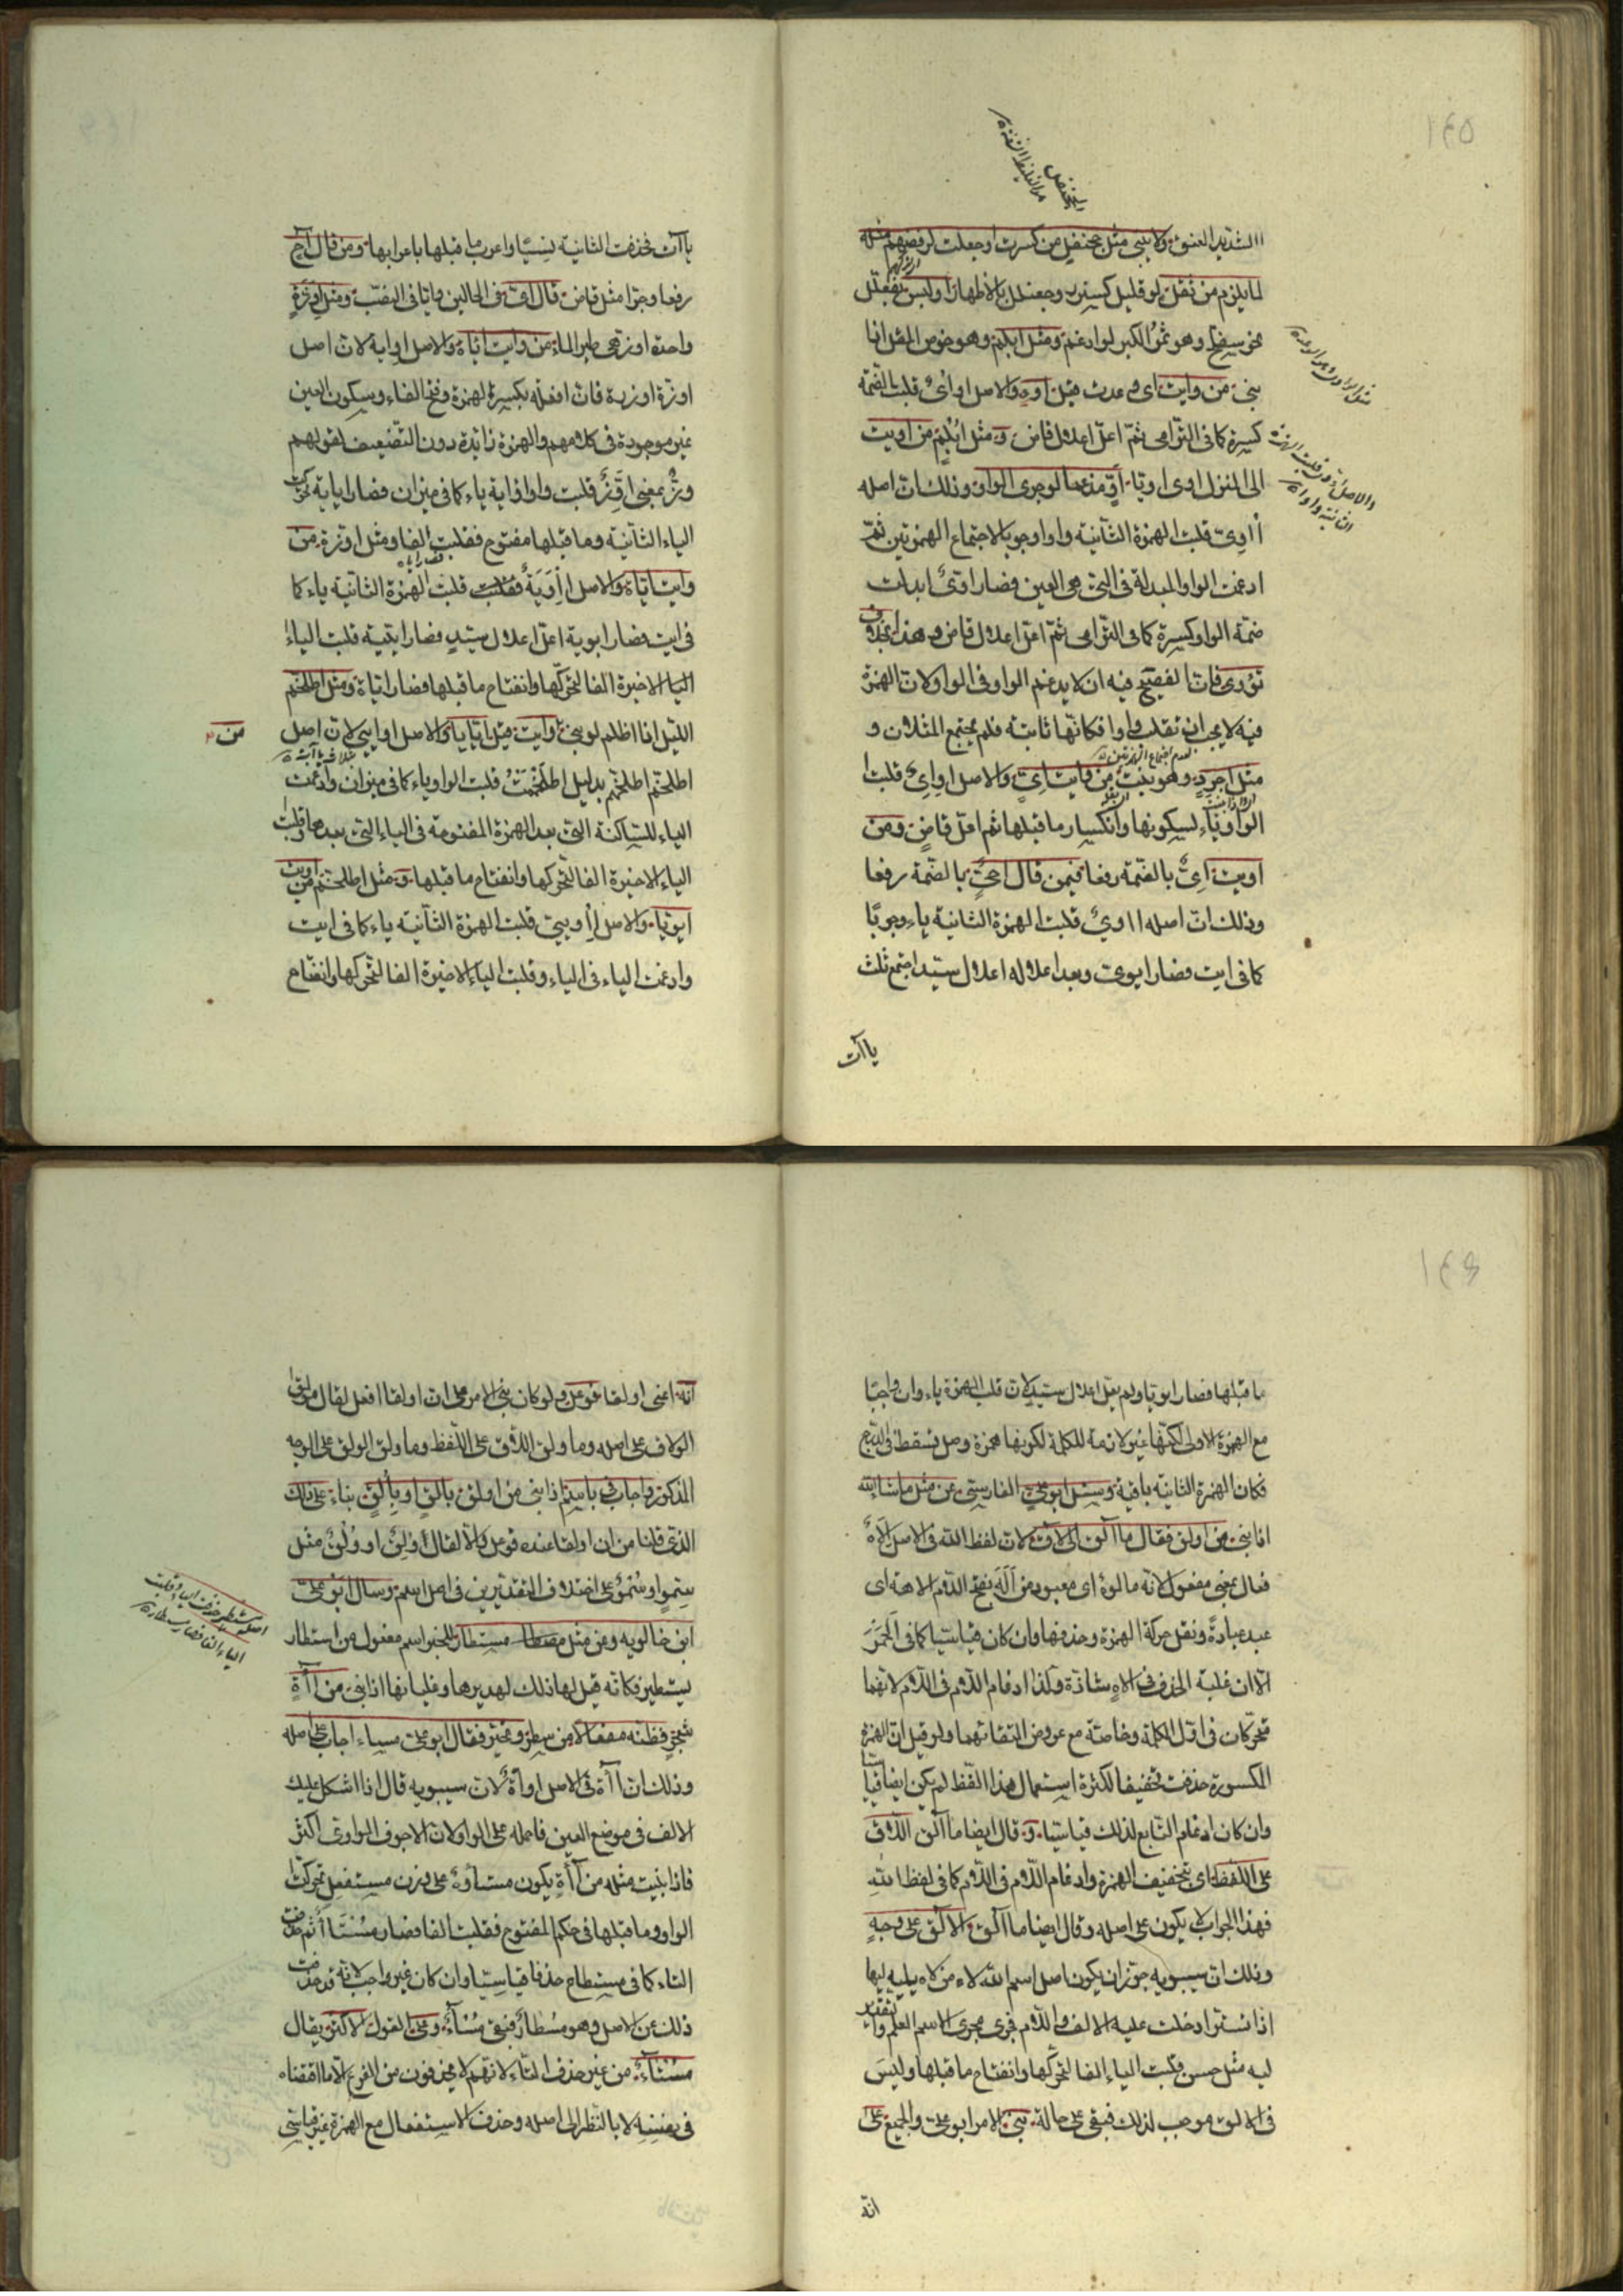 ١٤٥
الشديد العنق ولا يبنى مثل جحنفل من كسرت او جعلت لرفضهم مثله
لما يلزم من ثقل لو قليل كسنرر وجعنلل بالاظهار او لبس بفعلّل
نحو سفرجل وهو ثمر الكبر لو ادغم ومثل ابلم وهو خوص المقل اذا
بنى من وايت اى وعدت قيل اوء والاصل اوأى قلبت الضمة
كسرة كما فى الترامى ثمّ اعلّ اعلال قاض ومثل ابلم من اويت
الى المنزل اوى اويا اوّ مدغما لوجوب الواو وذلك ان اصله
أأوى قلبت الهمزة الثانية واوا وجوبا لاجتماع الهمزتين ثمّ
ادغمت الواو المبدلة فى التى هى العين فصار اوّى ابدلت
ضمة الواو كسرة كما فى الترامى ثمّ اعلّ اعلال قاض وهذا بخلاف
تؤوى فان الفصيح فيه ان لا يدغم الواو فى الواو لان الهمزة
فيه لا يجب ان تقلب واوا فكانّها ثابتة فلم يجتمع المثلان و
لعدم اجتماع الهمزتين
مثل اجرد وهو نبت من وايت اىء والاصل اوإى قلبت
الواو ياء لسكونها وانكسار ما قبلها ثم اعلّ قاض ومن
اويت اىّ بالضمة رفعا فيمن قال احىّ بالضمة رفعا
وذلك ان اصله ااوى قلبت الهمزة الثانية ياء وجوبا
كما فى ايت فصار ايوى وبعد اعلاله اعلال سيّد اجتمع ثلث
ياآت
ياآت فحذفت الثانية نسيّا واعرب ما قبلها باعرابها ومن قال احّ
رفعا وجرّا مثل قاض قال اىّ فى الحالين وايا فى النصب ومثل اوزّة
واحدة اوز وهى طير الماء من وايت ايئاة والاصل اوأية لان اصل
اوزّة اوززة فان افعلة بكسرة الهمزة وفتح الفاء وسكون العين
غير موجودة فى كلامهم والهمزة زائدة دون التضعيف لقولهم
وزّ بمعنى اوزّ قلبت واو اوأية ياء كما فى ميزان فصار ايأية تحركت
الياء الثانية وما قبلها مفتوح فقلبت الفا ومثل اوزّة من
اويت اياة والاصل إأوية فقلبت قلبت الهمزة الثانية ياء كما
فى ايت فصار ايوية اعلّ اعلال سيّد فصار ايّية قلبت الياء
الياء الاخيرة الفا لتحركها وانفتاح ما قبلها فصار ايّاة ومثل اطلخمّ
الليل اذا اظلم لو بنى وايت قيل ايأيّا والاصل اوأيّى لان اصل
من
اطلخمّ اطلخمم بدليل اطلخممت قلبت الواو ياء كما فى ميزان وادغمت
الياء الساكنة التى بعد الهمزة المفتوحة فى الياء التى بعدها وقلبت
الياء الاخيرة الفا لتحركها وانفتاح ما قبلها ومثل اطلخمّ من اويت
ايويّا والاصل إأويّى قلبت الهمزة الثانية ياء كما فى ايت
وادغمت الياء فى الياء وقلبت الياء الاخيرة الفا لتحركها وانفتاح
١٤٦
ما قبلها فصار ايويّا ولم يعلّ اعلال سيّد لان قلب الهمزة ياء وان وجب
مع الهمزة الاولى لكنّها غير لازمة للكلمة لكونها همزة وصل تسقط فى الدرج
فكان الهمزة الثانية باقية وسئل ابو على الفارسى عن مثل ما شاء الله
اذا بنى من اولق فقال ما ألق الالاق لان لفظ الله فى الاصل الإلاه
فعال بمعنى مفعول لانه مألوه اى معبود من أله بفتح اللام الاهة اى
عبد عبادة ونقل حركة الهمزة وحذفها وان كان قياسيا كما فى الحمر
الا ان غلبة الحذف فى الاه شاذة وكذا ادغام اللام فى اللام لانهما
متحركان فى اول الكلمة وخاصة مع عروض التقائهما ولو قيل ان الهمزة
المكسورة حذفت تخفيفا لكثرة استعمال هذا اللفظ لم يكن ايضا قياسيا
وان كان ادغام التابع لذلك قياسيا وقال ايضا ما ألق اللاق
على اللفظ اى بتخفيف الهمزة وادغام اللام فى اللام كما فى لفظ الله
فهذا الجواب لا يكون على اصله وقال ايضا ما ألق والالق على وجه
وذلك ان سيبويه جوّز ان يكون اصل اسم الله لاه من لاه يليه ليها
اذا تستّر ادخلت عليه الالف واللام فجرى مجرى الاسم العلم وتقدير لاه
ليه مثل حسن قلبت الياء الفا لتحركها وانفتاح ما قبلها وليس
فى الالق موجب لذلك فبقى على حاله بنى الامر ابو على والجميع على
انّه
انّه اعنى اولقا فوعل ولو كان بنى الامر على ان اولقا افعل لقال ما ولق
الولاق على اصله وما ولق اللاق على اللفظ وما ولق الولق على الوجه
المذكور واجاب فى باسم اذا بنى من اولق بالق او بألق بناء على ذلك
الذى قلنا من ان اولقا عنده فوعل والا لقال اولق او ولق مثل
سمو او سمو على اختلاف التقديرين فى اصل اسم وسأل ابو على
ابن خالويه ومن مثل مسطار للخمر اسم مفعول من استطار
يستطير فكانه قيل لها ذلك لهديرها وغليانها اذا بنى من آءة
شجر فظنه مفعالا من سطر وتحيّر فقال ابو على مسئاء اجاب على اصله
وذلك ان آءة فى الاصل اوأة لان سيبويه قال اذا اشكل عليك
الالف فى موضع العين فاحمله على الواو لان الاجوف الواوى اكثر
فاذا بنيت مثله من آءة يكون مستأوء على وزن مستفعل تحركت
الواو وما قبلها فى حكم المفتوح فقلبت الفا فصار مستآء ثم حذفت
التاء كما فى مسطاع حذفا قياسيّا وان كان غير واجب لانه قد حذفت
ذلك عن الاصل وهو مسطار فبقى مسآء وعن القول الاكثر يقال
مستآء من غير حذف التاء لانهم لا يحذفون من الفرع الا ما اقتضاه
فى نفسه لا بالنظر الى اصله وحذف الاستفعال مع الهمزة غير قياسى
اصله مستطير حذفت التاء وقلبت
الياء الفا فصار مسطار